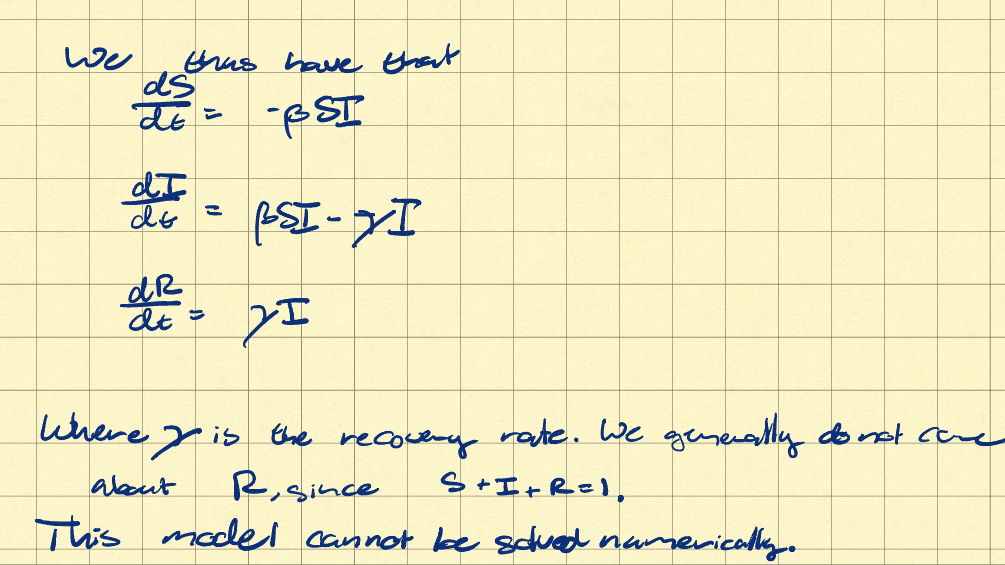 We thus have that
dS/dt = -βSI
dI/dt = βSI - γI
dR/dt = γI
Where γ is the recovery rate. We generally do not care
about R, since S+I+R=1.
This model cannot be solved numerically.